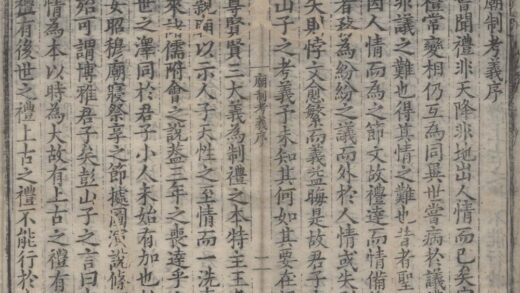 廟制考義序
嘗聞禮非天降非地出人情而已矣
禮常變相仍互為同異世嘗病於議
非議之難也得其情之難也昔者聖
因人情而為之節文故禮達而情備
者務為紛紛之議而外於人情或失
失則悖文愈繁而義益晦是故君子
山子之考義予未知其何如其要在
廟制考義序 一
尊賢賢三大義為制禮之本特主王
説以示人子天性之至情而一洗
來諸儒附會之説蓋三年之喪達乎
世之澤同於君子小人未始有加也
昭穆廟寢祭享之節據闡演説條
殆可謂博雅君子矣彭山子之言曰
情為本以時為大故有上古之禮有
禮有後世之禮上古之禮不能行於